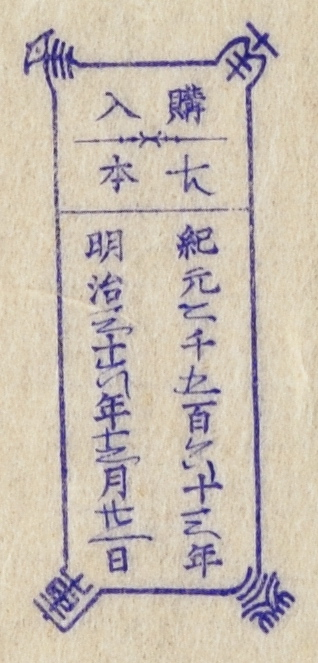 購入
本
紀元二千五百六十三年
明治三十六年十二月廿一日